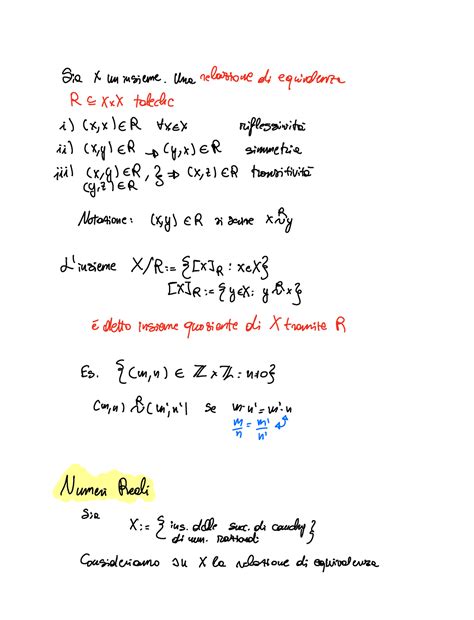 Sia X un insieme. Una relazione di equivalenza
R ⊆ X×X tale che
i) (x,x) ∈ R ∀x∈X riflessività
ii) (x,y) ∈ R → (y,x) ∈ R simmetria
iii) (x,y) ∈ R, } ⇒ (x,z) ∈ R transitività
(y,z) ∈ R
Notazione: (x,y) ∈ R si scrive x ~ᴿ y
L'insieme X/R := {[x]_R : x∈X}
[x]_R := {y∈X: y ~ᴿ x}
è detto insieme quoziente di X tramite R
Es. {(m,n) ∈ ℤ×ℤ : n≠0}
(m,n) ~ᴿ (m',n') se m·n' = m'·n
m/n = m'/n'
Numeri Reali
Sia
X := { ins. delle succ. di cauchy }
di num. razionali
Consideriamo su X la relazione di equivalenza